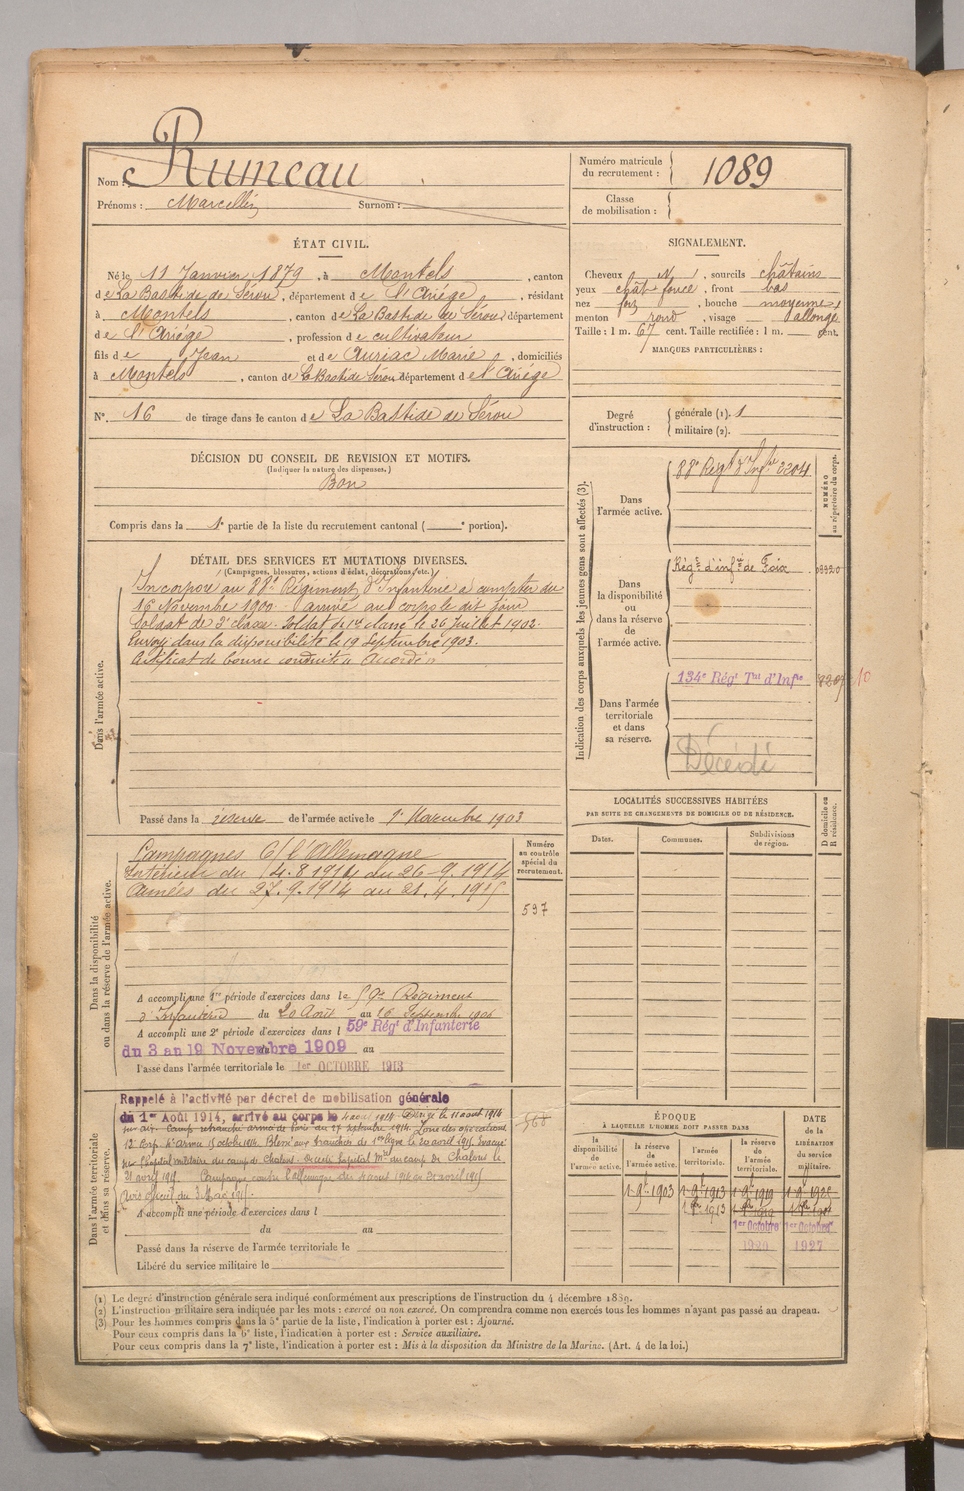 Nom : Rumeau
Prénoms : Marcellin Surnom :
Numéro matricule
du recrutement : 1089
Classe
de mobilisation :
ÉTAT CIVIL.
Né le 11 Janvier 1879, à Montels, canton
de La Bastide de Sérou, département de l'Ariége, résidant
à Montels, canton de La Bastide de Sérou, département
de l'Ariége, profession de cultivateur
fils de Jean et de Auriac Marie, domiciliés
à Montels, canton de La Bastide Sérou département de l'Ariége
N°. 16 de tirage dans le canton de La Bastide de Sérou
SIGNALEMENT.
Cheveux N, sourcils châtains
yeux chât. foncé, front bas
nez fort, bouche moyenne
menton rond, visage allongé
Taille : 1 m. 67 cent. Taille rectifiée : 1 m. cent.
MARQUES PARTICULIÈRES :
Degré
d'instruction :
générale (1). 1
militaire (2).
DÉCISION DU CONSEIL DE REVISION ET MOTIFS.
(Indiquer la nature des dispenses.)
Bon
Compris dans la 1e partie de la liste du recrutement cantonal ( e portion).
DÉTAIL DES SERVICES ET MUTATIONS DIVERSES.
(Campagnes, blessures, actions d'éclat, décorations, etc.)
Dans l'armée active.
Incorporé au 88e Régiment d'Infanterie à compter du
16 Novembre 1900. arrivé au corps le dit jour
Soldat de 2e classe. Soldat de 1ère classe le 26 Juillet 1902.
Envoyé dans la disponibilité le 19 Septembre 1903.
Certificat de bonne conduite "Accordé"
Passé dans la réserve de l'armée active le 1er Novembre 1903
Indication des corps auxquels les jeunes gens sont affectés (3).
NUMÉRO
au répertoire du corps.
Dans
l'armée active.
88e Régt d'Infie 2204
Dans
la disponibilité
ou
dans la réserve
de
l'armée active.
Régt d'infie de Foix
Dans l'armée
territoriale
et dans
sa réserve.
134e Régt Tal d'Infie
10
Décédé
LOCALITÉS SUCCESSIVES HABITÉES
PAR SUITE DE CHANGEMENTS DE DOMICILE OU DE RÉSIDENCE.
Dates. Communes. Subdivisions
de région.
D domicile ou
R résidence.
Dans la disponibilité
ou dans la réserve de l'armée active.
Numéro
au contrôle
spécial du
recrutement.
597
Campagnes C/ l'Allemagne
Intérieur du 4.8 1914 au 26-9.1914
Armées du 27.9.1914 au 21.4.1915
A accompli une 1re période d'exercices dans le 59e Régiment
d'Infanterie du 20 Août au 16 Septembre 1906
A accompli une 2e période d'exercices dans l 59e Régt d'Infanterie
du 3 au 19 Novembre 1909 au
Passé dans l'armée territoriale le 1er OCTOBRE 1913
Dans l'armée territoriale
et dans sa réserve.
Rappelé à l'activité par décret de mobilisation générale
du 1er Août 1914, arrivé au corps le 4 août 1914. Dirigé le 11 août 1914
sur camp retranché armé de Paris du 27 septembre 1914. Zone des opérations
12e Corp. 4e Armée 15 octobre 1914. Blessé aux tranchées de 1ère ligne le 20 avril 1915. Evacué
sur l'hôpital militaire du camp de Chalons. Décédé hôpital Mre du camp de Chalons le
21 avril 1915. Campagne contre l'Allemagne du 4 août 1914 au 21 avril 1915
Avis officiel du 3 Mai 1915.
568
A accompli une période d'exercices dans l
du au
Passé dans la réserve de l'armée territoriale le
Libéré du service militaire le
ÉPOQUE
À LAQUELLE L'HOMME DOIT PASSER DANS
la
disponibilité
de
l'armée active.
la réserve
de
l'armée active.
l'armée
territoriale.
la réserve
de
l'armée
territoriale.
DATE
de la
LIBÉRATION
du service
militaire.
1-9-1903 1-9-1913 1-9-1919 1-9-1925
1er Octobre 1er Octobre
1920 1927
(1) Le degré d'instruction générale sera indiqué conformément aux prescriptions de l'instruction du 4 décembre 1889.
(2) L'instruction militaire sera indiquée par les mots : exercé ou non exercé. On comprendra comme non exercés tous les hommes n'ayant pas passé au drapeau.
(3) Pour les hommes compris dans la 5e partie de la liste, l'indication à porter est : Ajourné.
Pour ceux compris dans la 6e liste, l'indication à porter est : Service auxiliaire.
Pour ceux compris dans la 7e liste, l'indication à porter est : Mis à la disposition du Ministre de la Marine. (Art. 4 de la loi.)